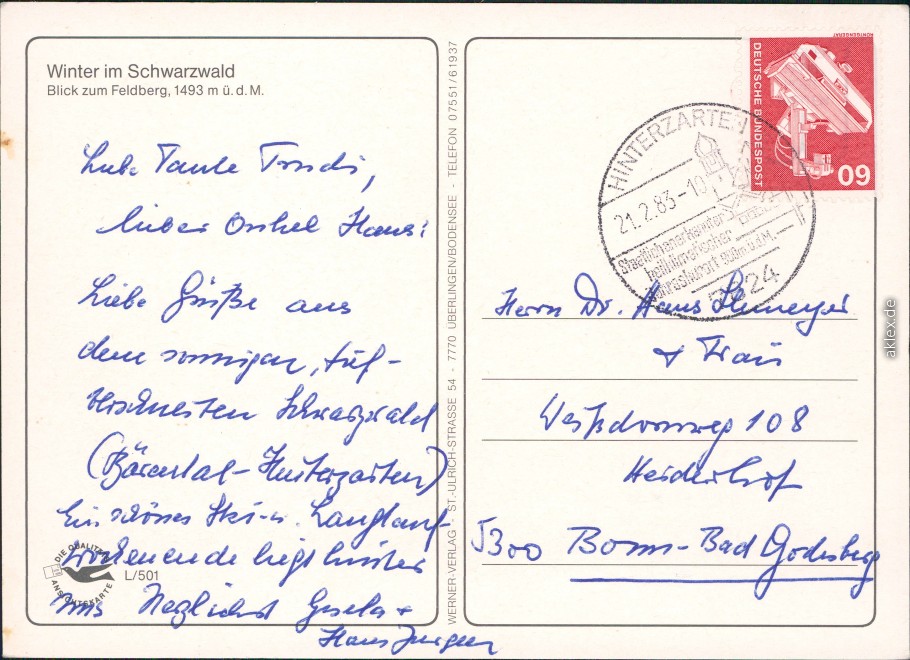 Winter im Schwarzwald
Blick zum Feldberg, 1493 m ü.d.M.
Liebe Tante Trudi,
lieber Onkel Hans!
Liebe Grüße aus
dem sonnigen, tief-
verschneiten Schwarzwald
(Bärental-Hinterzarten)
Ein schönes Ski- u. Langlauf-
wochenende liegt hinter
uns Herzlichst Gisela +
Hans Jürgen
DIE QUALITÄTS
ANSICHTSKARTE
L/501
WERNER-VERLAG · ST.-ULRICH-STRASSE 54 - 7770 ÜBERLINGEN/BODENSEE - TELEFON 07551/61937
RÖNTGENGERÄT
DEUTSCHE BUNDESPOST
60
HINTERZARTEN
21.2.83-10
Staatlich anerkannter
heilklimatischer
Kurort 900m ü.d.M.
7824
Herrn Dr. Hans
+ Frau
Weißdornweg 108
Heiderhof
5300 Bonn-Bad Godesberg
aklex.de